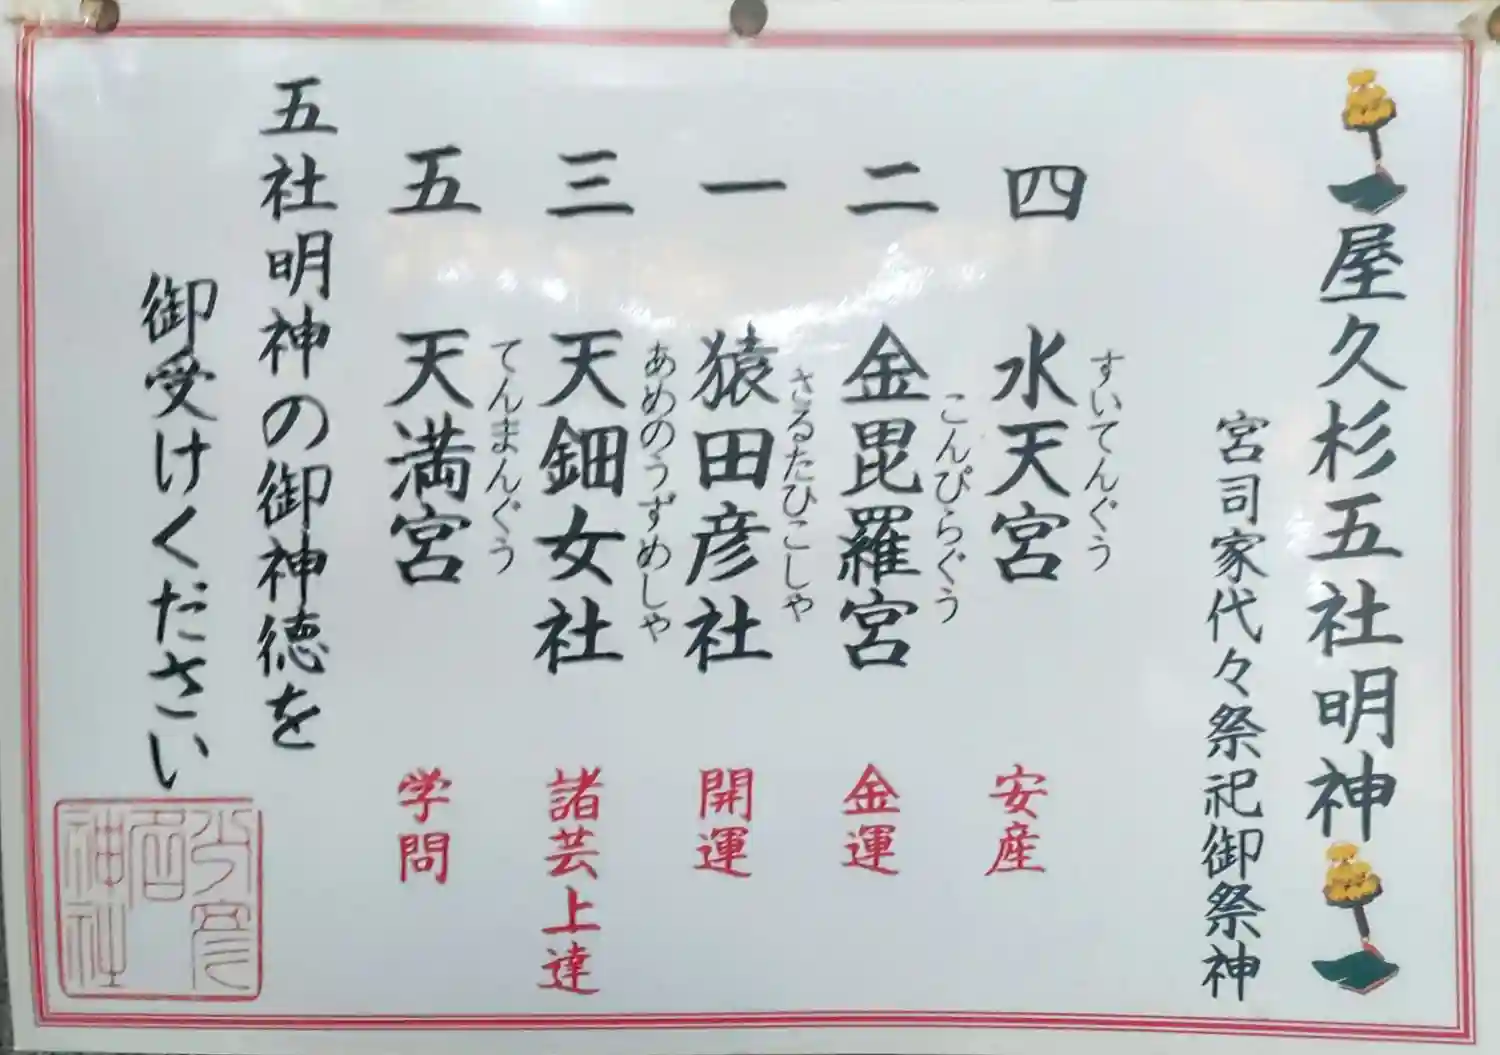 屋久杉五社明神
宮司家代々祭祀御祭神
四 水天宮 安産
すいてんぐう
二 金毘羅宮 金運
こんぴらぐう
一 猿田彦社 開運
さるたひこしゃ
三 天鈿女社 諸芸上達
あめのうずめしゃ
五 天満宮 学問
てんまんぐう
五社明神の御神徳を
御受けください